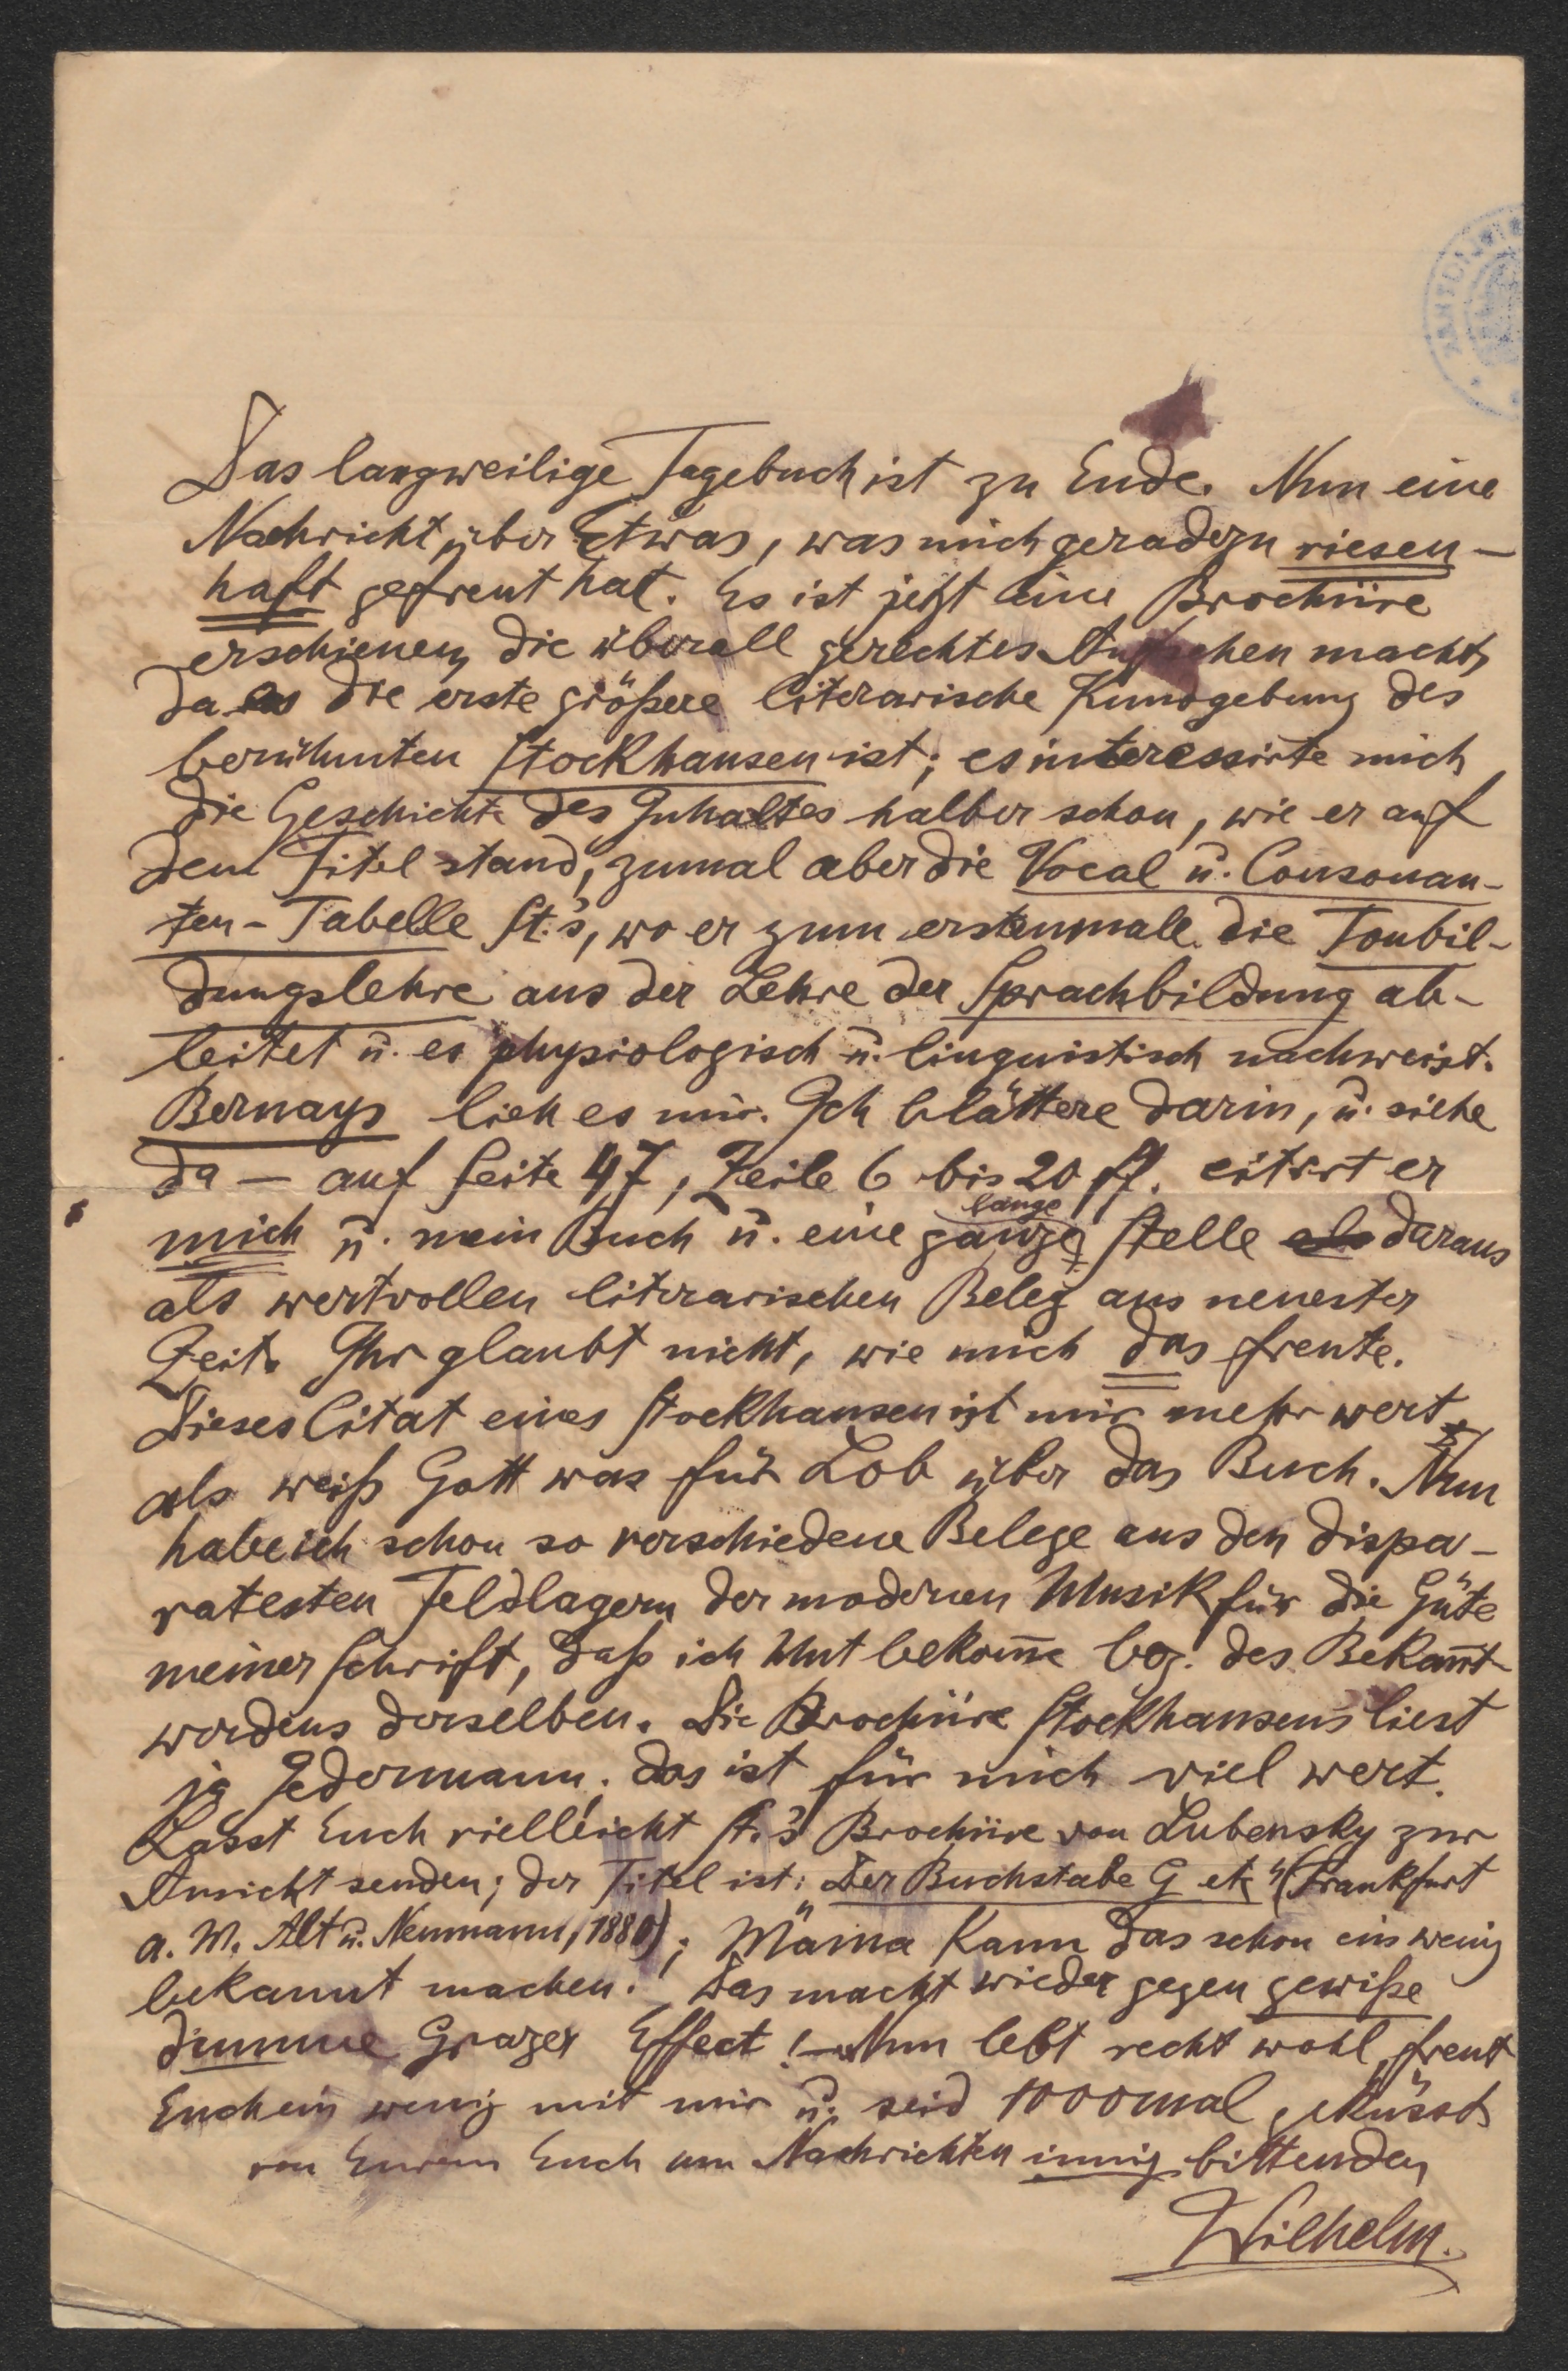 Das langweilige Tagebuch ist zu Ende. Nun eine
Nachricht über Etwas, was mich geradezu riesen-
haft gefreut hat. Es ist jetzt eine Brochüre
erschienen, die überall gerechtes Aufsehen macht,
da es die erste größere literarische Kundgebung des
berühmten Stockhausen ist; es interessirte mich
die Geschichte des Inhaltes halber schon, wie er auf
dem Titel stand, zumal aber die Vocal u. Consonan-
ten-Tabelle St.'s, wo er zum erstenmale die Tonbil-
dungslehre aus der Lehre der Sprachbildung ab-
leitet u. es physiologisch u. linguistisch nachweist.
Bernays lieh es mir. Ich blättere darin, u. siehe
da — auf Seite 47, Zeile 6 bis 20 ff. citirt er
mich u. mein Buch u. eine ganze lange Stelle als daraus
als wertvollen literarischen Beleg aus neuester
Zeit. Ihr glaubt nicht, wie mich das freute.
Dieses Citat eines Stockhausen ist mir mehr wert,
als weiß Gott was für Lob über das Buch. Nun
habe ich schon so verschiedene Belege aus den dispa-
ratesten Feldlagern der modernen Musik für die Güte
meiner Schrift, daß ich Mut bekom̅e bez. des Bekan̅t-
werdens derselben. Die Brochüre Stockhausens liest
ja Jedermann; das ist für mich viel wert.
Lasst Euch vielleicht St.'s Brochüre von Lubensky zur
Ansicht senden; der Titel ist: Der Buchstabe G etc" (Frankfurt
a. M. Alt u. Neumann, 1880); Mama kann das schon ein wenig
bekannt machen. Das macht wieder gegen gewiße
dumme Grazer Effect! — Nun lebt recht wohl, freut
Euch ein wenig mit mir u. seid 1000mal geküsst
von Eurem Euch um Nachrichten innig bittenden
Wilhelm.